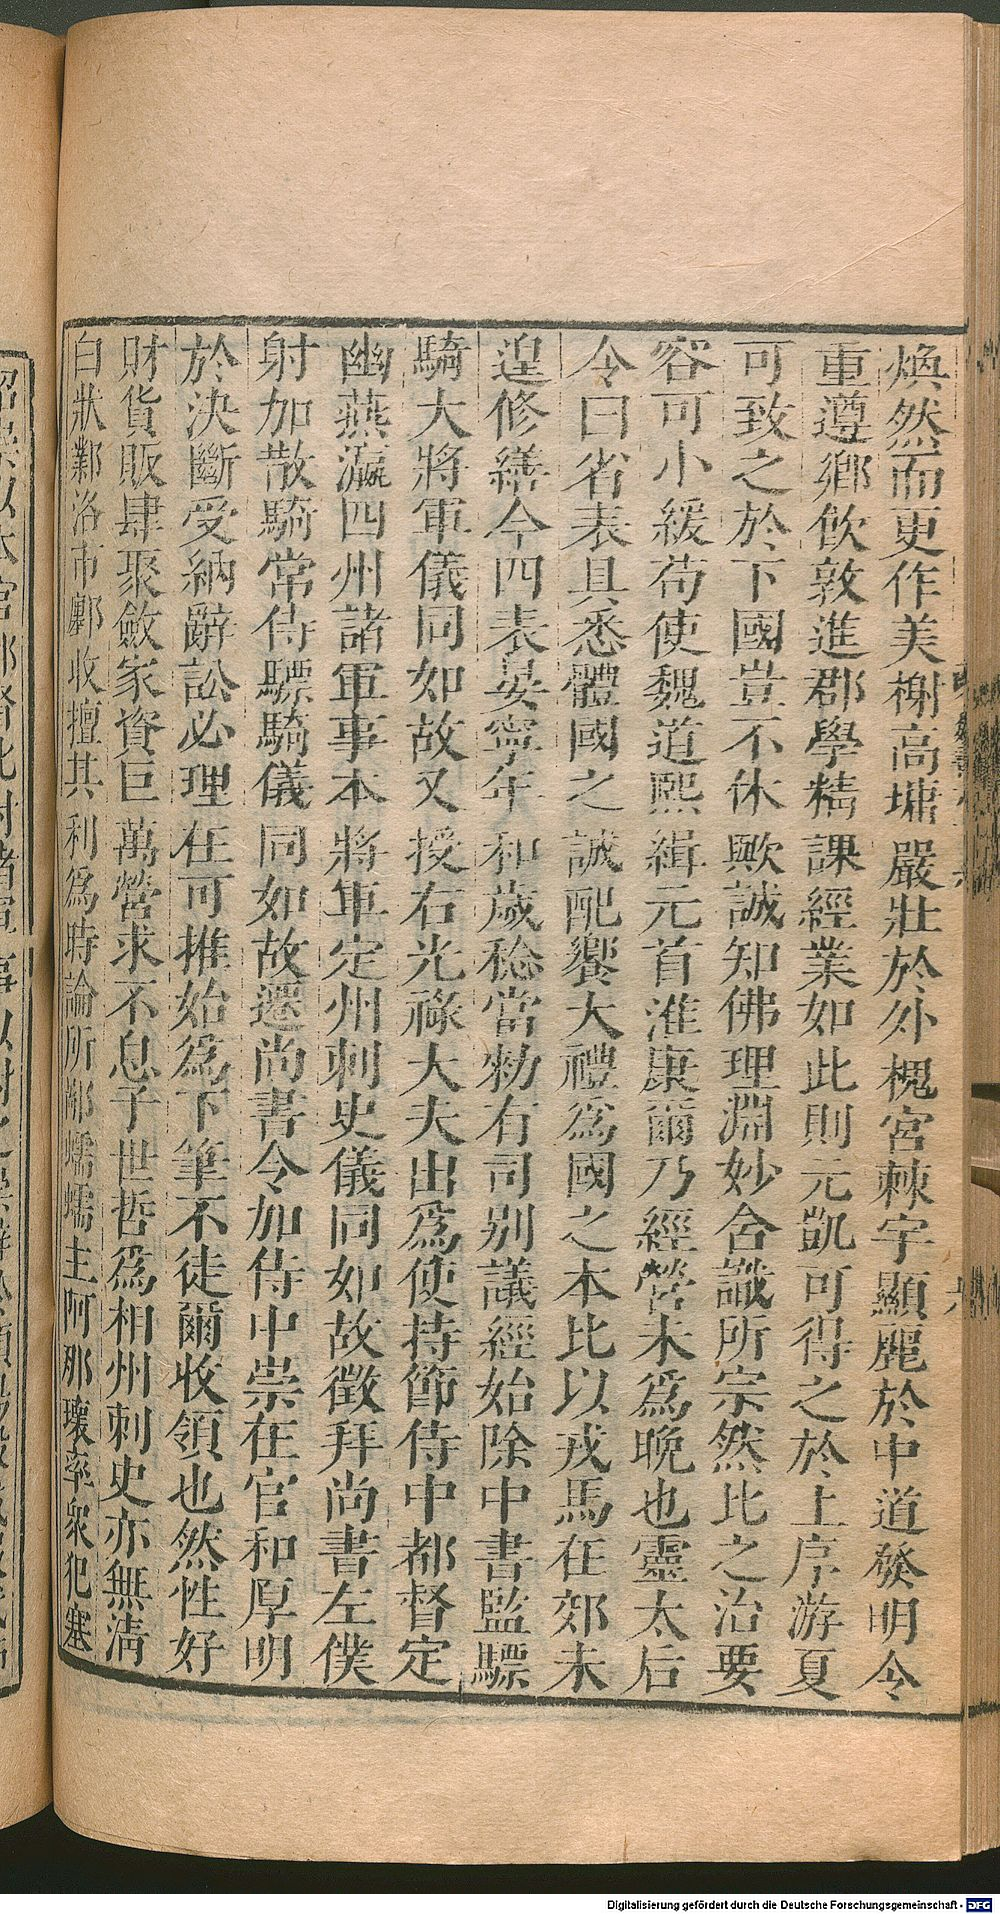 煥然而更作美榭高墉嚴壯於外槐宮棘宇顯麗於中道發明令
重遵鄉飲敦進郡學精課經業如此則元凱可得之於上序游夏
可致之於下國豈不休歟誠知佛理淵妙含識所宗然比之治要
容可小緩苟使魏道熙緝元首淮康爾乃經營未爲晚也靈太后
令曰省表具悉體國之誠配饗大禮爲國之本比以戎馬在郊未
遑修繕今四表晏寧年和歲稔當勅有司别議經始除中書監驃
騎大將軍儀同如故又授右光祿大夫出爲使持節侍中都督定
幽燕瀛四州諸軍事本將軍定州刺史儀同如故徵拜尚書左僕
射加散騎常侍驃騎儀同如故遷尚書令加侍中崇在官和厚明
於決斷受納辭訟必理在可推始爲下筆不徒爾收領也然性好
財貨販肆聚斂家資巨萬營求不息子世哲爲相州刺史亦無清
白狀鄴洛市鄽收擅其利爲時論所鄙蠕蠕主阿那瓌率衆犯塞
Digitalisierung gefördert durch die Deutsche Forschungsgemeinschaft - DFG